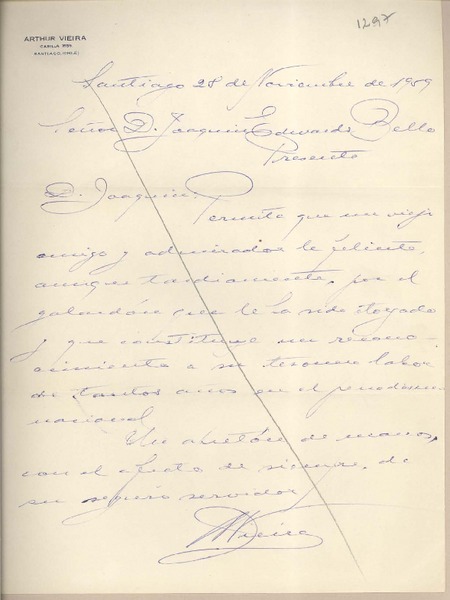 1297
ARTHUR VIEIRA
CASILLA
SANTIAGO (CHILE)
Santiago 28 de Noviembre de 1959
Señor D. Joaquín Edwards Bello
Presente
D. Joaquín. Permita que un viejo
amigo y admirador le felicite,
aunque tardiamente, por el
galardón que le ha sido otogado
y que constituye un recono-
cimiento a su tesonera labor
de tantos años en el periodismo
nacional.
Un apretón de manos,
con el afecto de siempre, de
su seguro servidor
AVieira